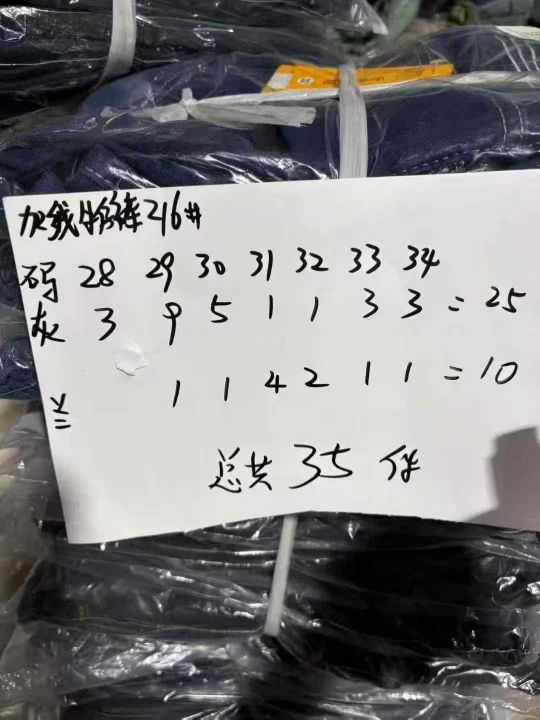 加线牛仔裤216#
码 28 29 30 31 32 33 34
灰 3 9 5 1 1 3 3 = 25
1 1 4 2 1 1 = 10
总共 35 件